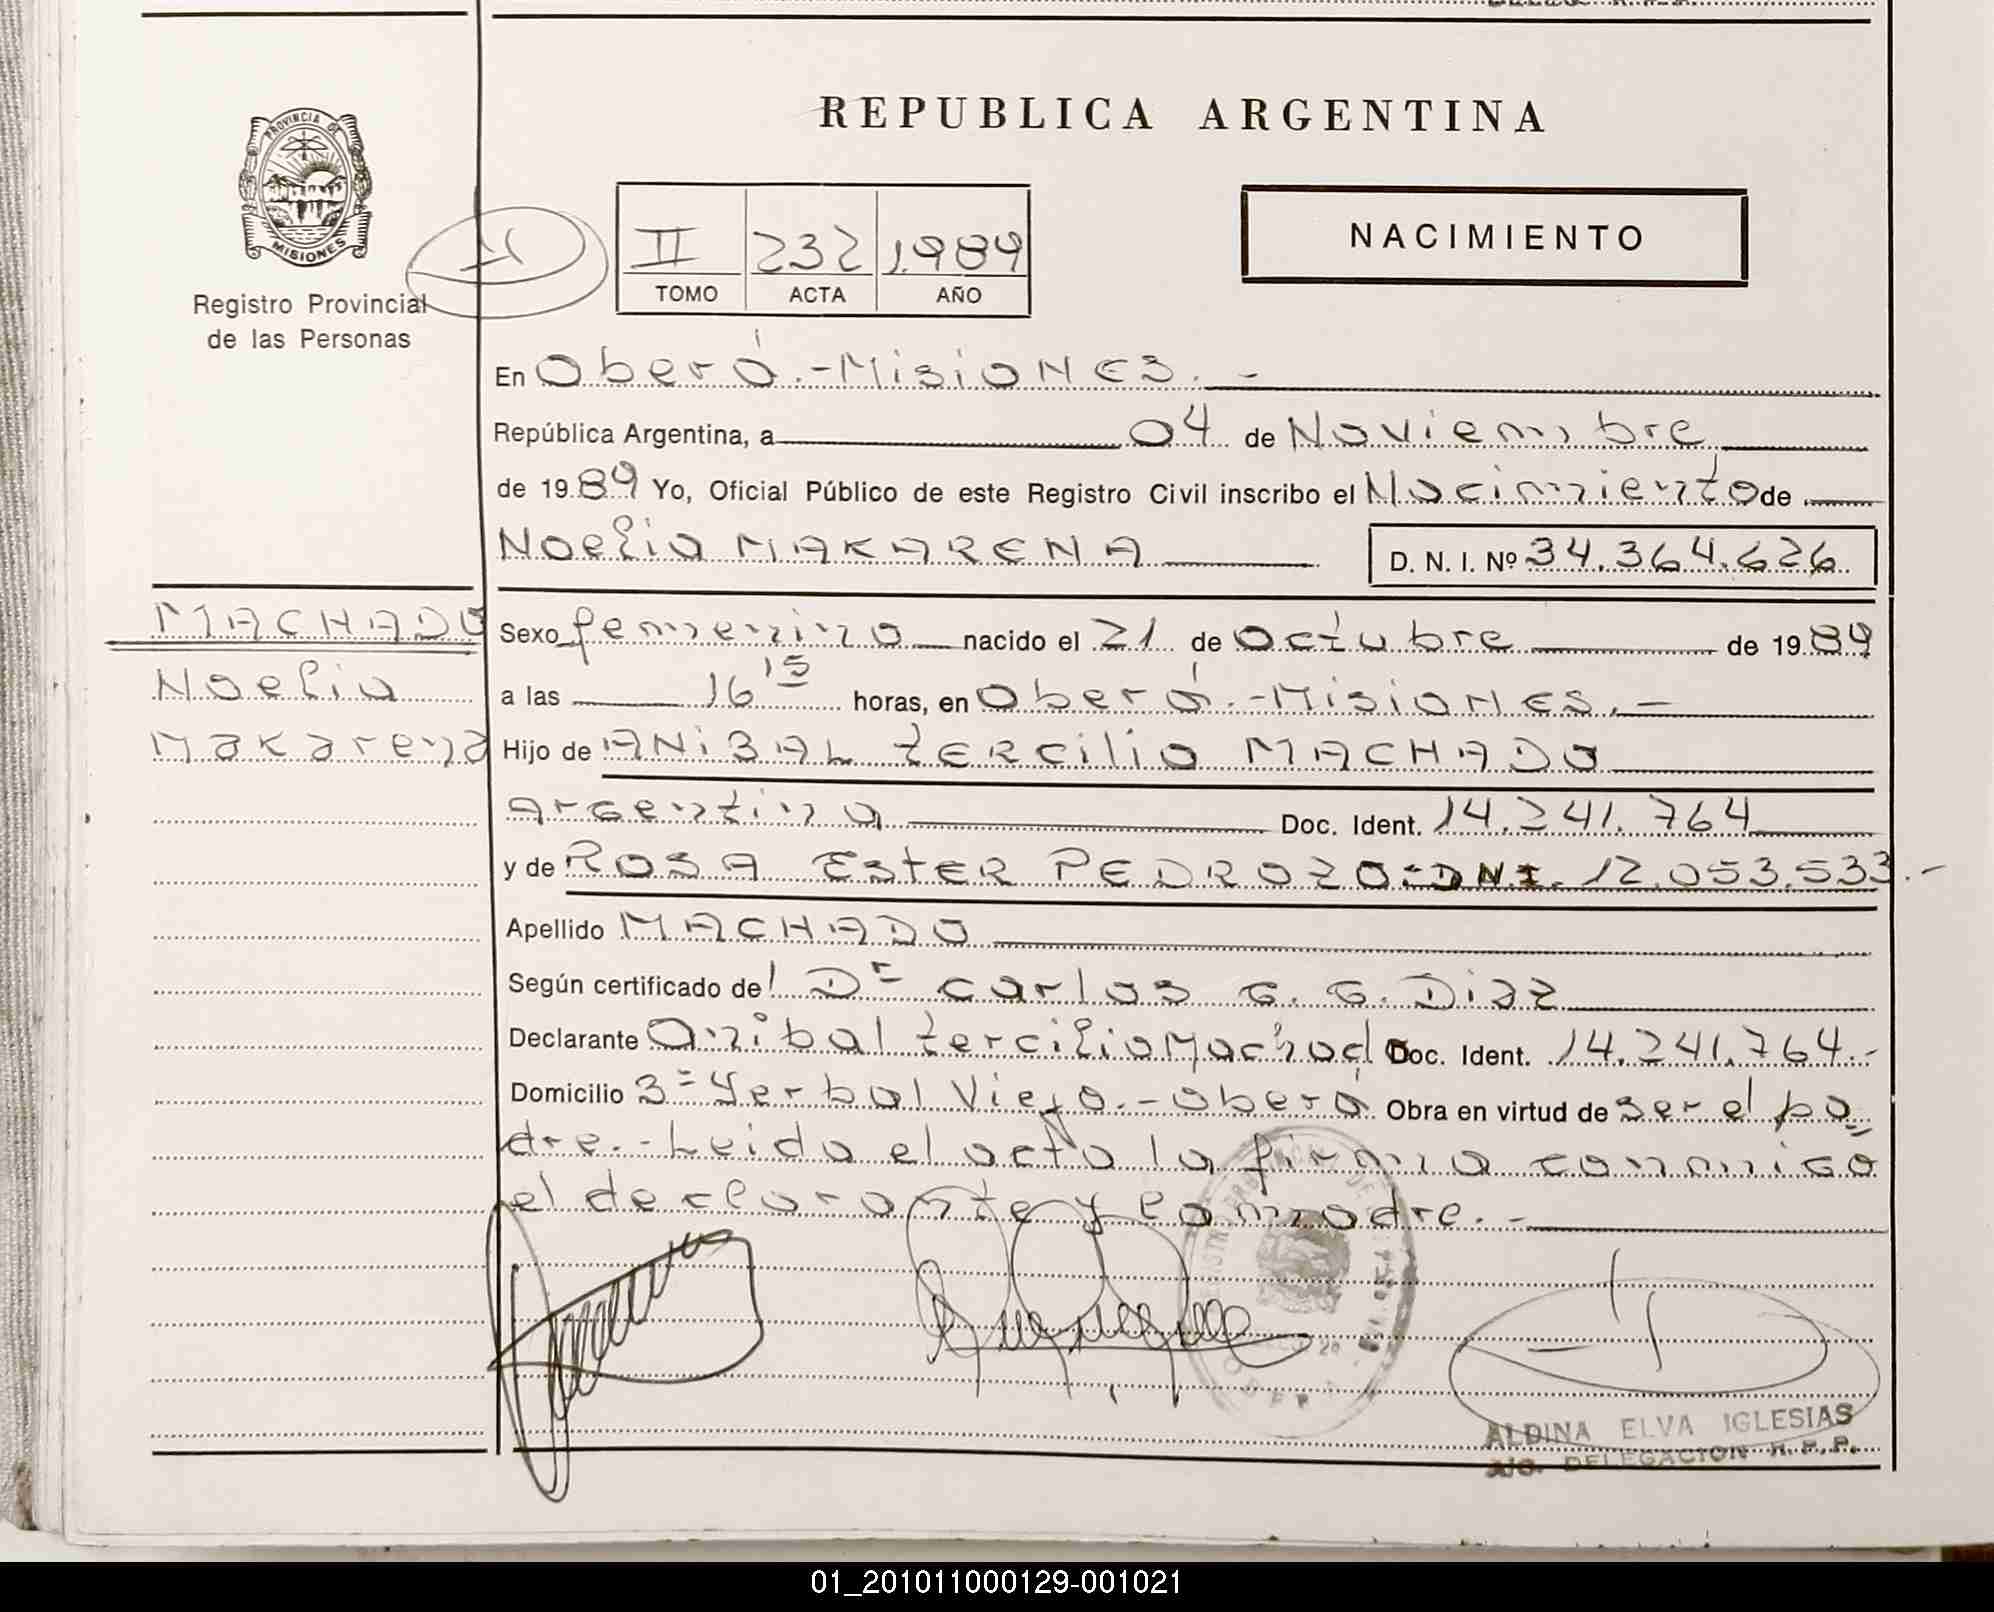 REPUBLICA ARGENTINA
PROVINCIA DE
MISIONES
Registro Provincial
de las Personas
II 232 1.989
TOMO ACTA AÑO
NACIMIENTO
En Oberá.-Misiones.-
República Argentina, a 04 de Noviembre
de 1989 Yo, Oficial Público de este Registro Civil inscribo el Nacimiento de
Noelia MAKARENA D. N. I. Nº 34.364.626
MACHADO
Noelia
Makarena
Sexo femenino nacido el 21 de octubre de 1989
a las 16 15 horas, en Oberá.-Misiones.-
Hijo de ANIBAL tERCilio MACHADO
Argentina Doc. Ident. 14.241.764
y de ROSA EstER PEDROZO-DNI. 12.053.533.-
Apellido MACHADO
Según certificado del Dr carlos G. G. Diaz
Declarante Anibal tercilio Machado Doc. Ident. 14.241.764.-
Domicilio 3= Yerbal Viejo.-Oberá Obra en virtud de ser el pa=
dre.-Leida el acta la firma conmigo
el declarante y la madre.-
ALDINA ELVA IGLESIAS
A/C. DELEGACION R.P.P.
01_201011000129-001021